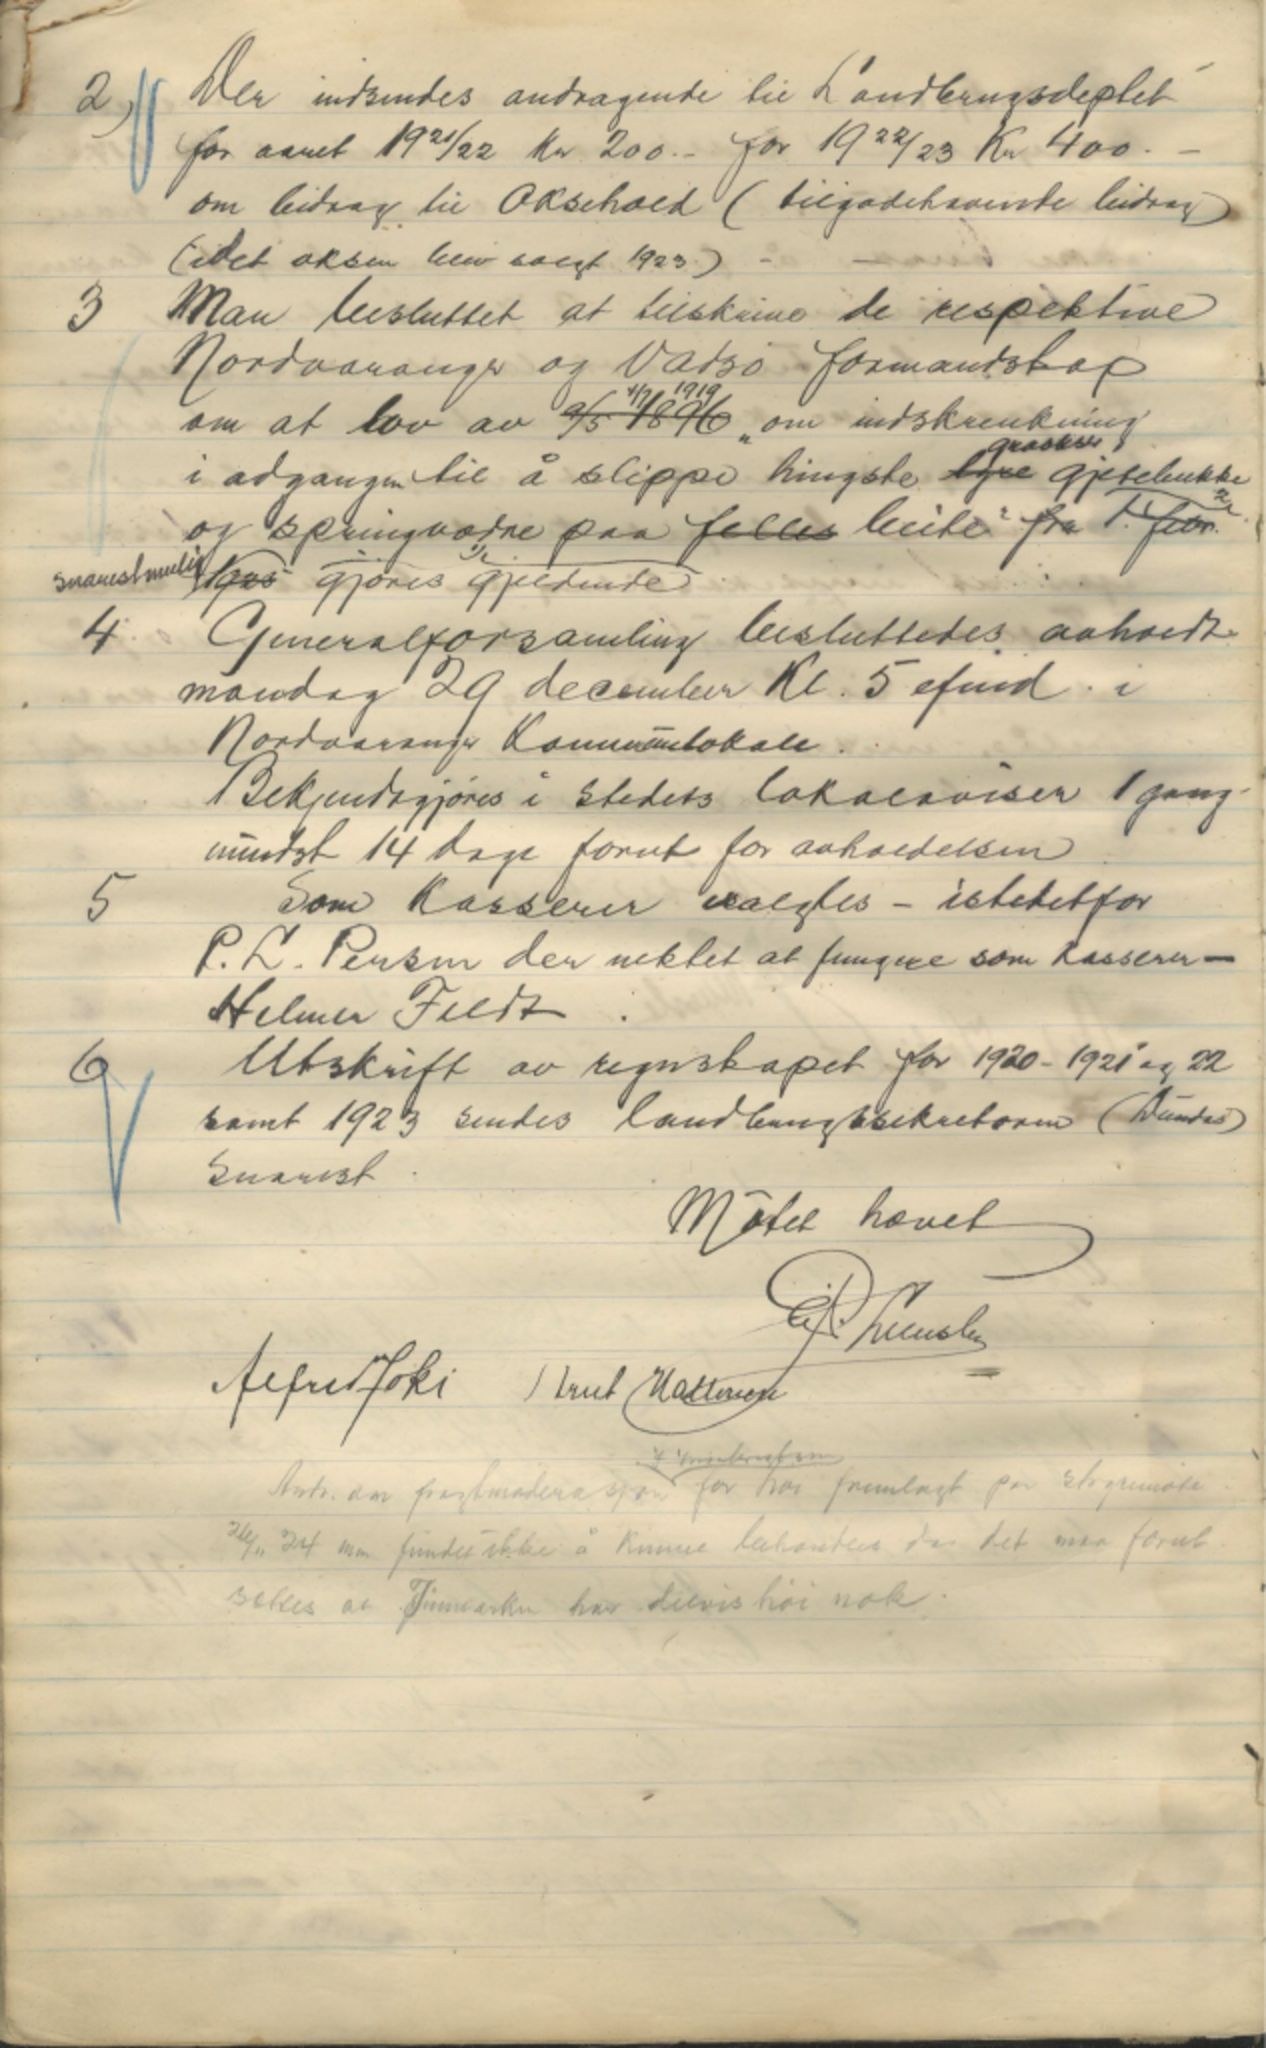 2) Der indsendes andragende til Landbrugsdeptet
for aaret 1921/22 Kr 200.- for 1922/23 Kr 400.-
om bidrag til Oksehold (tilgodehavende bidrag)
(idet oksen blev solgt 1923)
3 Man besluttet at tilskrive de respektive
Nordvaranger og Vadsö formandskap
om at lov av 9/5 1896 4/7 1919 „om indskrenkning
i adgangen til å slippe hingste tyre graokser, gjetebukke
og springvædre paa felles beite" fra 1. febr.
snarest mulig gjöres gjeldende
4 Generalforsamling besluttedes avholdt
mandag 29 december Kl. 5 efmd. i
Nordvaranger Kommunelokale.
Bekjendtgjöres i stedets lokalaviser 1 gang
mindst 14 dage forut for avholdelsen
5 Som Kasserer valgtes - istedetfor
P. L. Persen der nektet at fungere som kasserer -
Helmer Feldt.
6 Utskrift av regnskapet for 1920-1921 og 22
samt 1923 sendes landbrugssekretæren (Dundas)
snarest.
Mötet hævet
Alfred Joki
for höi fremlagt paa styremöte
26/11 24 man fundet ikke å kunne behandles da det maa forut
sökes at Finmarken har delvis höi nok.